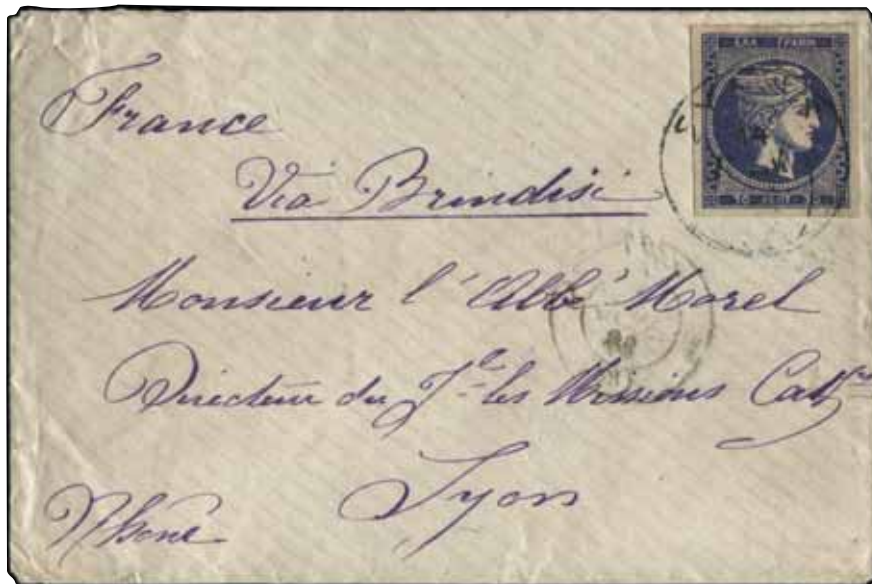 France
Via Brindisi
Monsieur l'Abbé Morel
Directeur du Jl les Missions Cathques
Lyon
Rhône